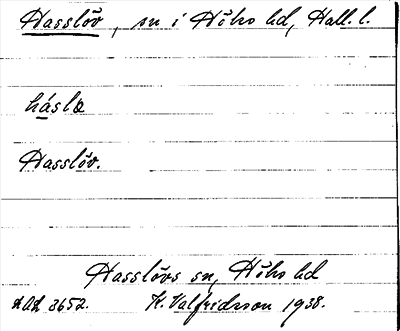 Hasslöv, sn i Höks hd, Hall. l.
háslə
Hasslöv.
Hasslövs sn, Höks hd
Acc. 3652. K. Valfridsson 1938.